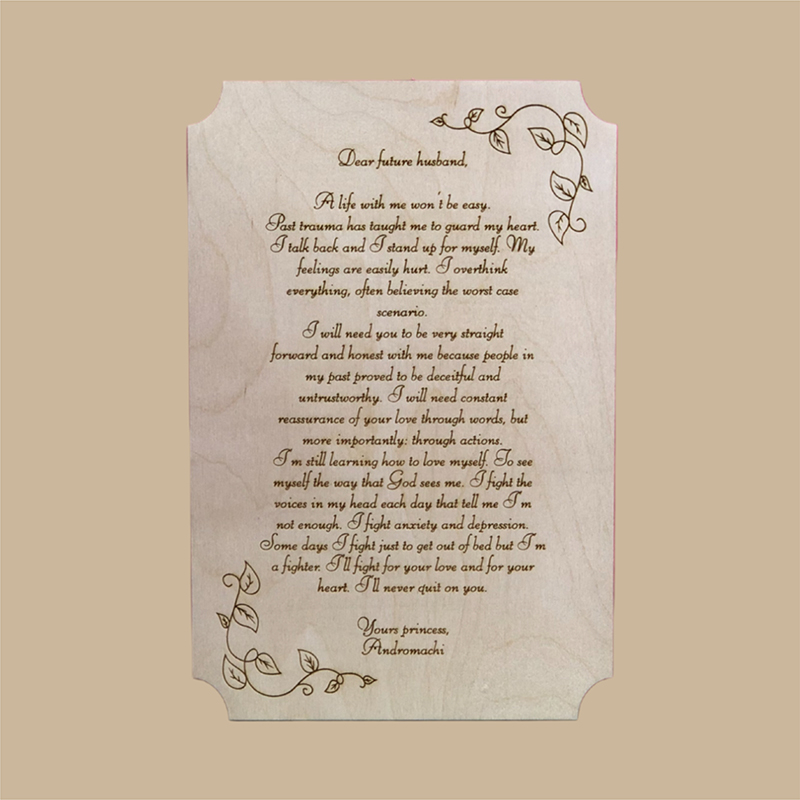 Dear future husband,
A life with me won't be easy.
Past trauma has taught me to guard my heart.
I talk back and I stand up for myself. My
feelings are easily hurt. I overthink
everything, often believing the worst case
scenario.
I will need you to be very straight
forward and honest with me because people in
my past proved to be deceitful and
untrustworthy. I will need constant
reassurance of your love through words, but
more importantly: through actions.
I'm still learning how to love myself. To see
myself the way that God sees me. I fight the
voices in my head each day that tell me I'm
not enough. I fight anxiety and depression.
Some days I fight just to get out of bed but I'm
a fighter. I'll fight for your love and for your
heart. I'll never quit on you.
Yours princess,
Andromachi